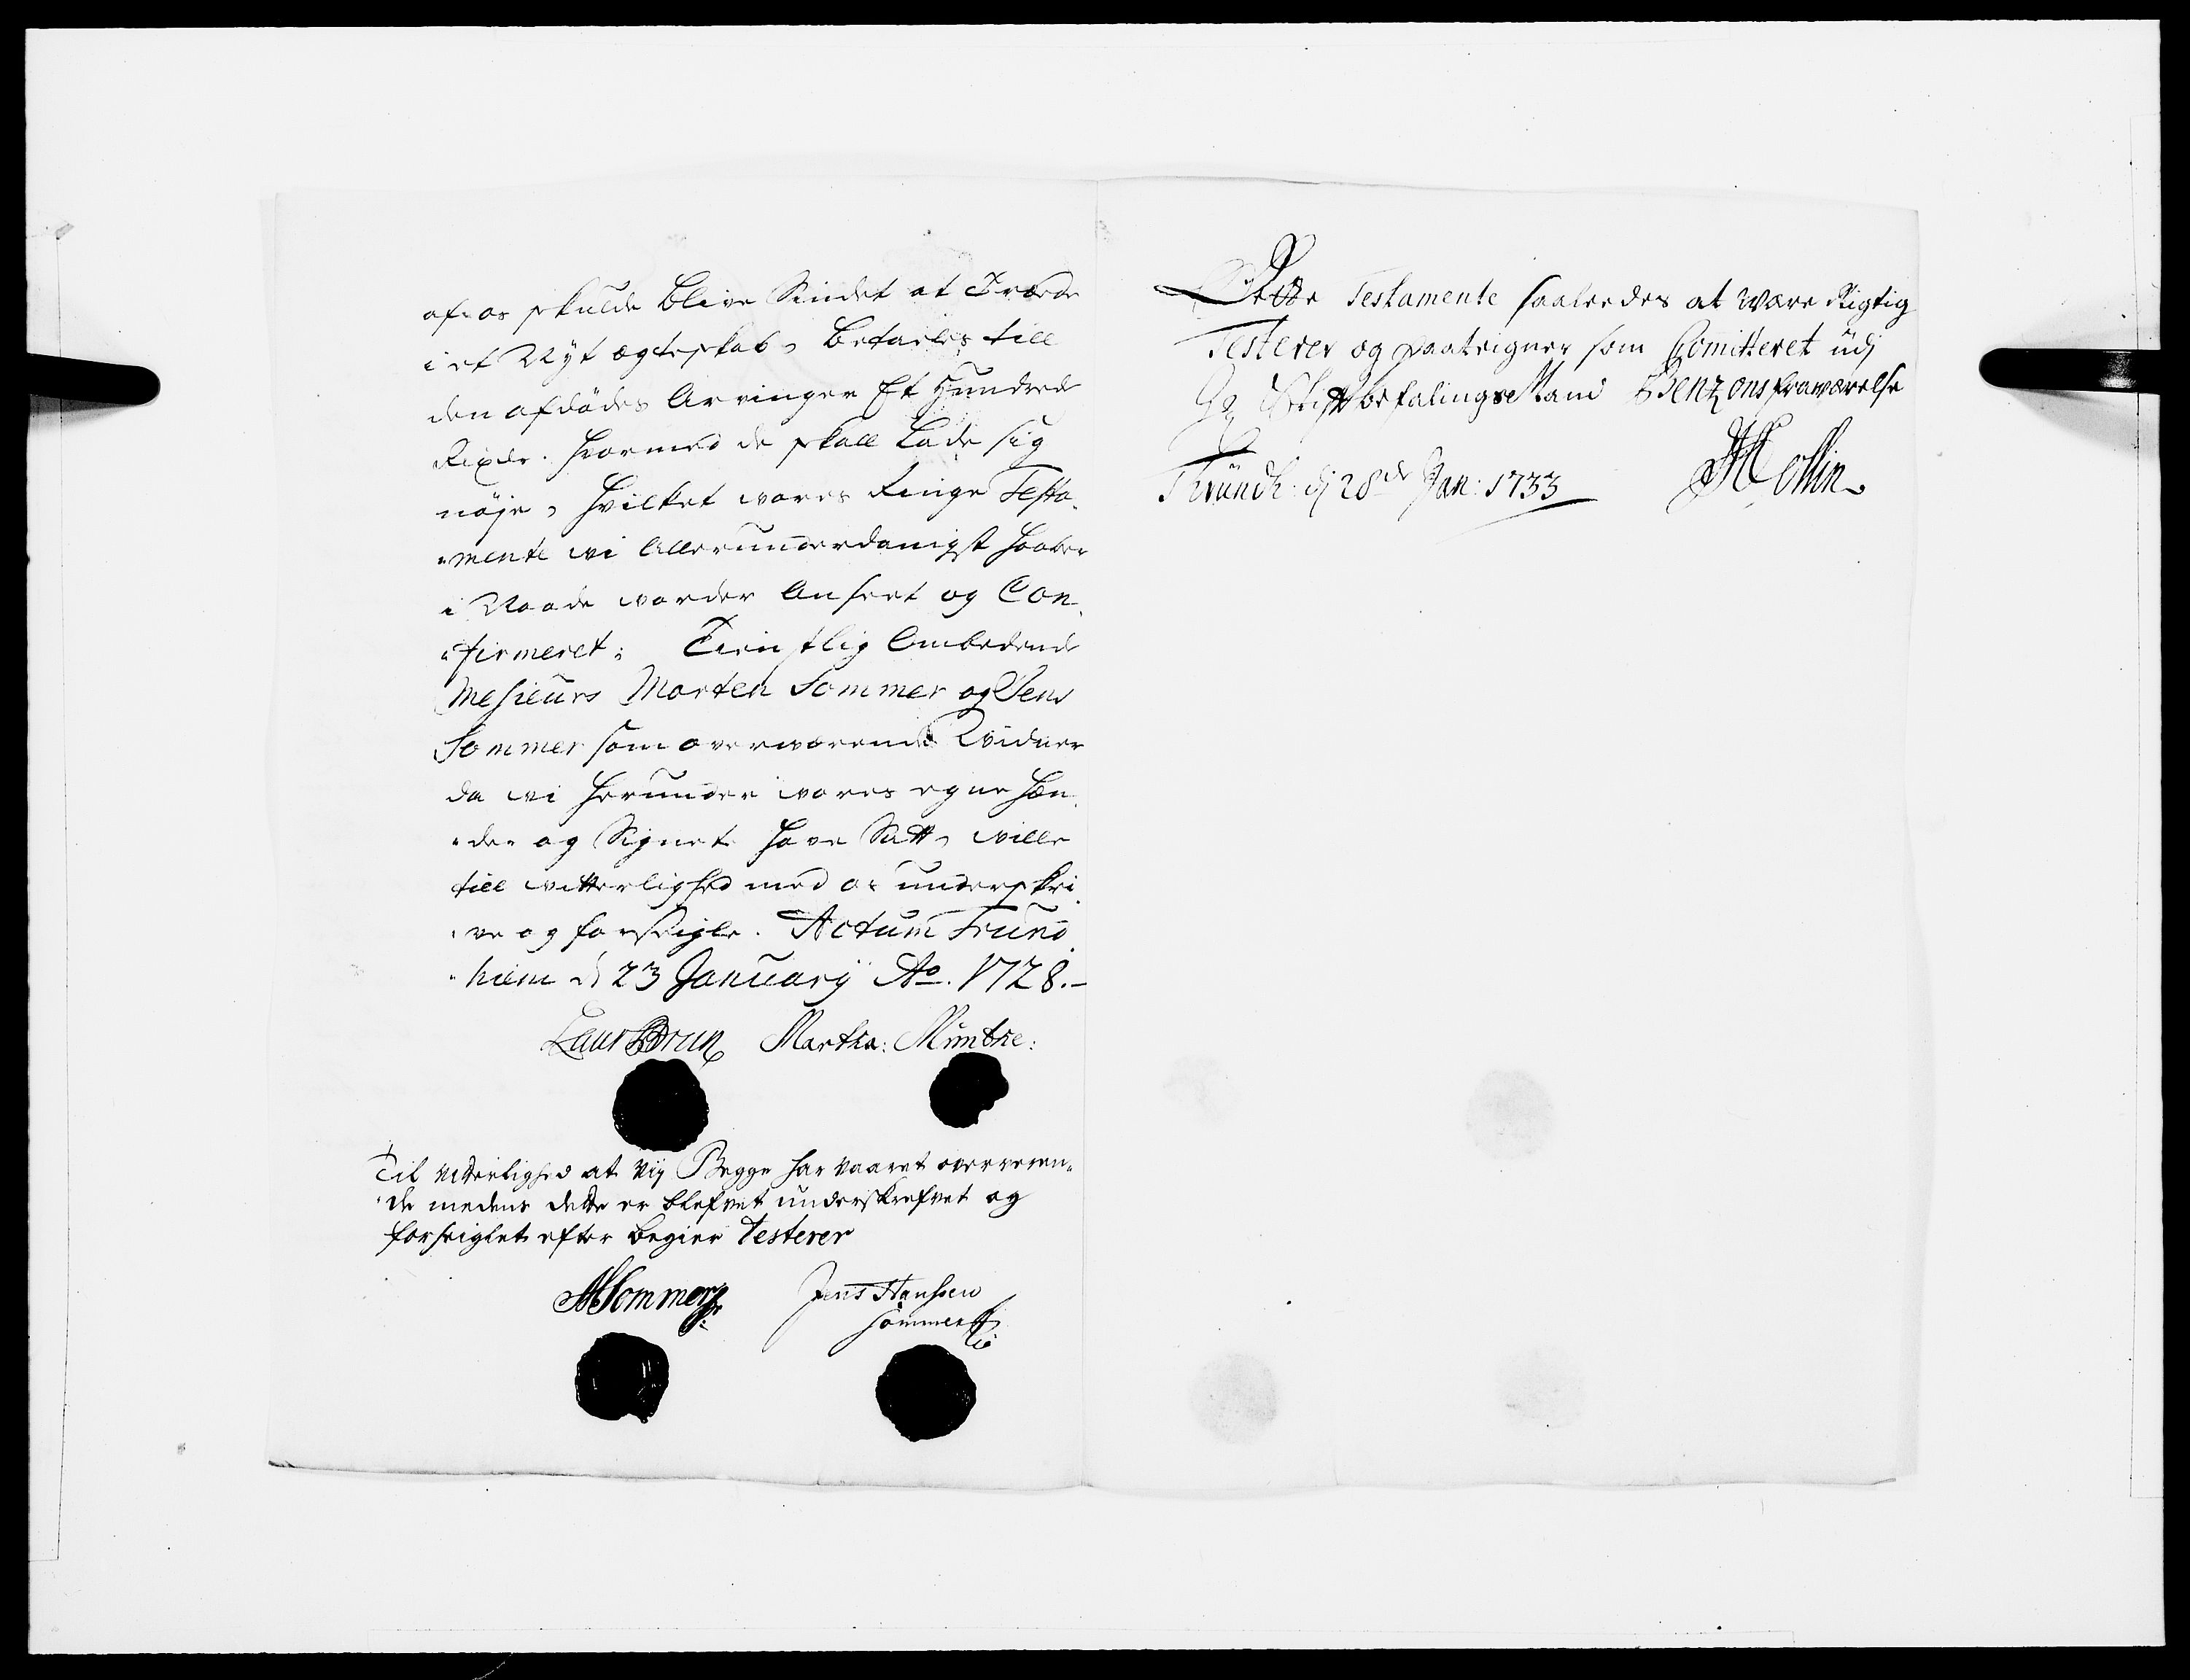 af os skulde blive Sindet at Træde
i et Nyt ægteskab, betales till
den afdödes Arvinger Et Hundrede
Rixdr. hvormed de skall lade sig
nöje, hvilket vores Ringe Testa-
"mente wi Allerunderdanigst haaber
i Naade vorder Anseet og Con-
"firmeret; Tienstlig Ombedende
Messieurs Morten Sommer og Jens
Sommer som overværende Widner
da wi herunder vores egne Hæn-
"der og Signet have Satt, wille
till witterlighed med os underskri-
"ve og forseigle. Actum Trund
"hiem d 23 January Ao. 1728.-
Laur Brun Martha: Müntke:
Til vitterlighed at vij Begge har vaaret oververen-
"de medens dette er blefvet underskrefvet og
forseiglet efter begier Testerer
MSommer Jens Hanssen
Sommer
Dette Testamente saaledes at være Rigtig
Testerer og paateigner som Committeret udj
Hr Stiftbefalingsmand Benzons fraværelse
Trundh: dj 28de Jan: 1733 Hollin